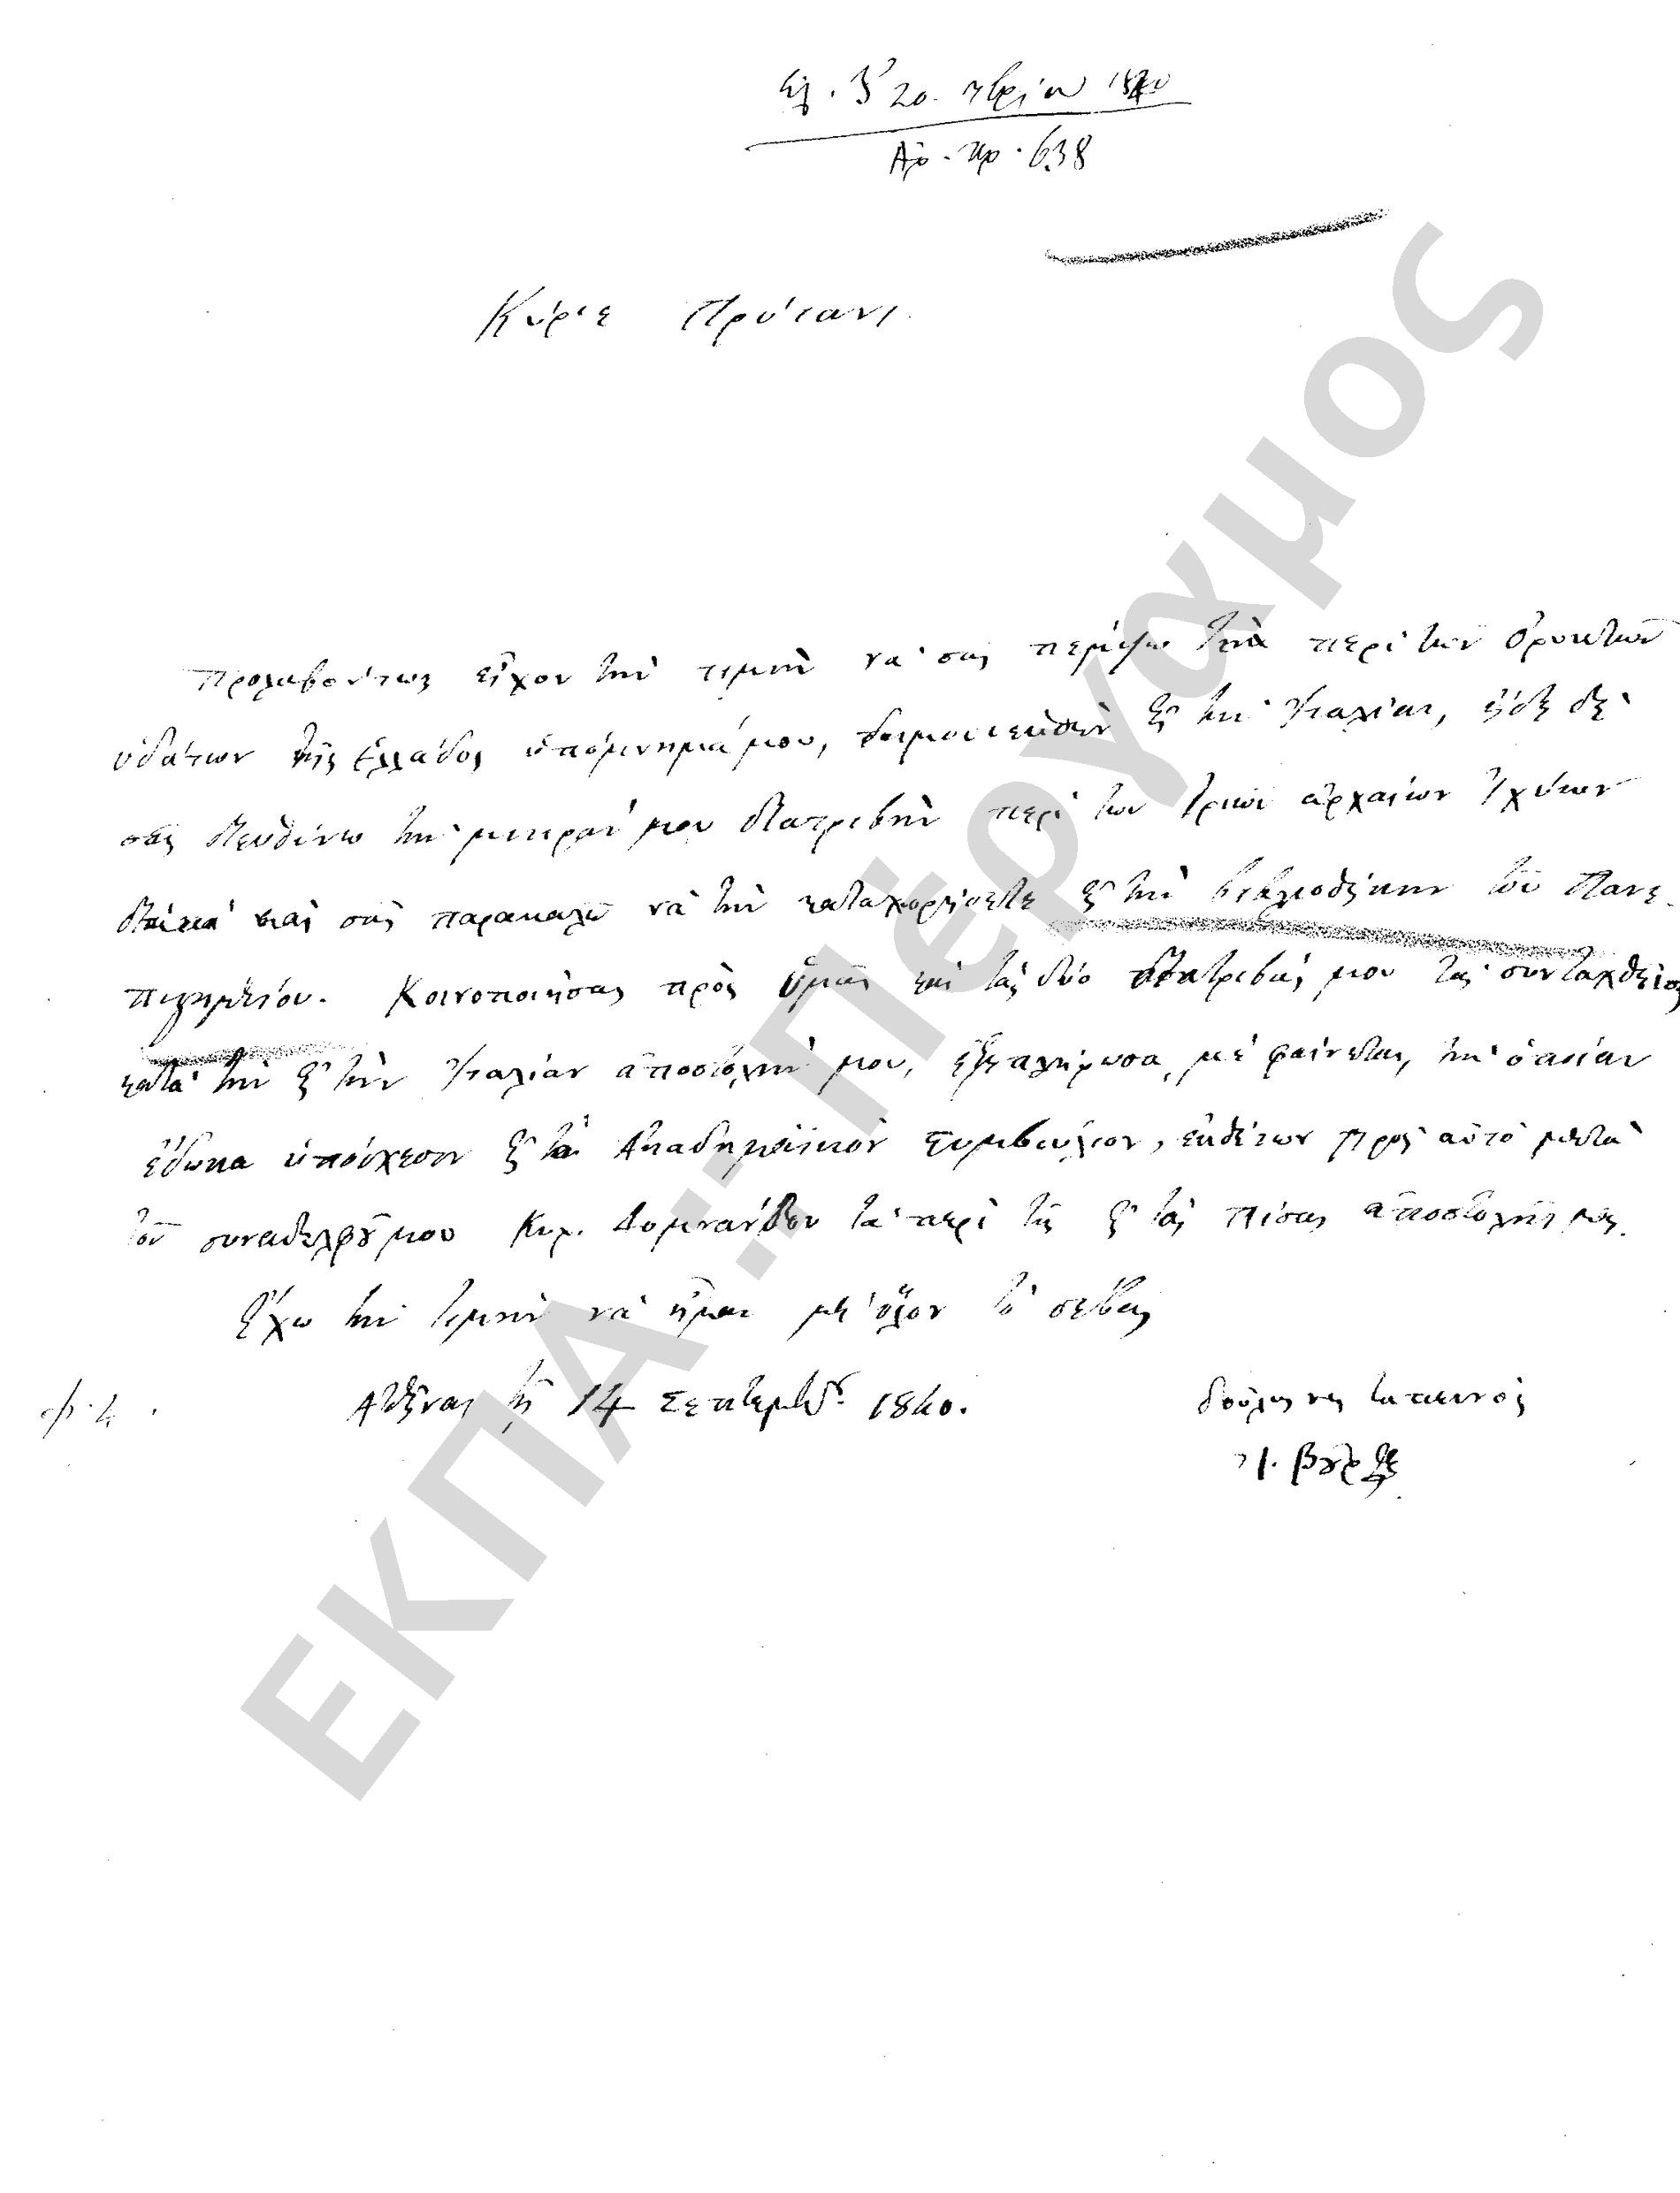 20. 7βρίου 1840
Ἀρ. πρ. 638
Κύριε Πρύτανι
Προλαβόντως εἶχον τὴν τιμὴν νὰ σᾶς πέμψω τὸ περὶ τῶν ὀρυκτῶν
ὑδάτων τῆς Ἑλλάδος ὑπόμνημά μου, δημοσιευθὲν εἰς τὴν Ἰταλίαν, ἤδη δὲ
σᾶς διευθύνω τὴν μικράν μου διατριβὴν περὶ τῶν τριῶν ἀρχαίων ἰχύων
καὶ σᾶς παρακαλῶ νὰ τὴν καταχωρήσετε εἰς τὴν βιβλιοθήκην τοῦ Πανε
πιστημείου. Κοινοποιήσας πρὸς ὑμᾶς καὶ τὰς δύο διατριβάς μου τὰς συνταχθείσας
κατὰ τὴν εἰς τὴν Ἰταλίαν ἀποστολήν μου, ἐξεπλήρωσα, μὲ φαίνεται, τὴν ὁποίαν
ἔδωκα ὑπόσχεσιν εἰς τὸ Ἀκαδημαϊκὸν Συμβούλιον, ἐκθέτων πρὸς αὐτὸ μετὰ
τοῦ συναδελφοῦ μου Κυρ. Δομνάνδου τὰ περὶ τῆς εἰς τὰς Πίσας ἀποστολῆς μας.
Ἔχω τὴν τιμὴν νὰ ἦμαι μὲ ὅλον τὸ σέβας
Ἀθῆνας τῇ 14 Σεπτεμβρ. 1840. δοῦλος σας ταπεινὸς
Ἰ. Βοῦρος
ΕΚΠΑ::Πέργαμος